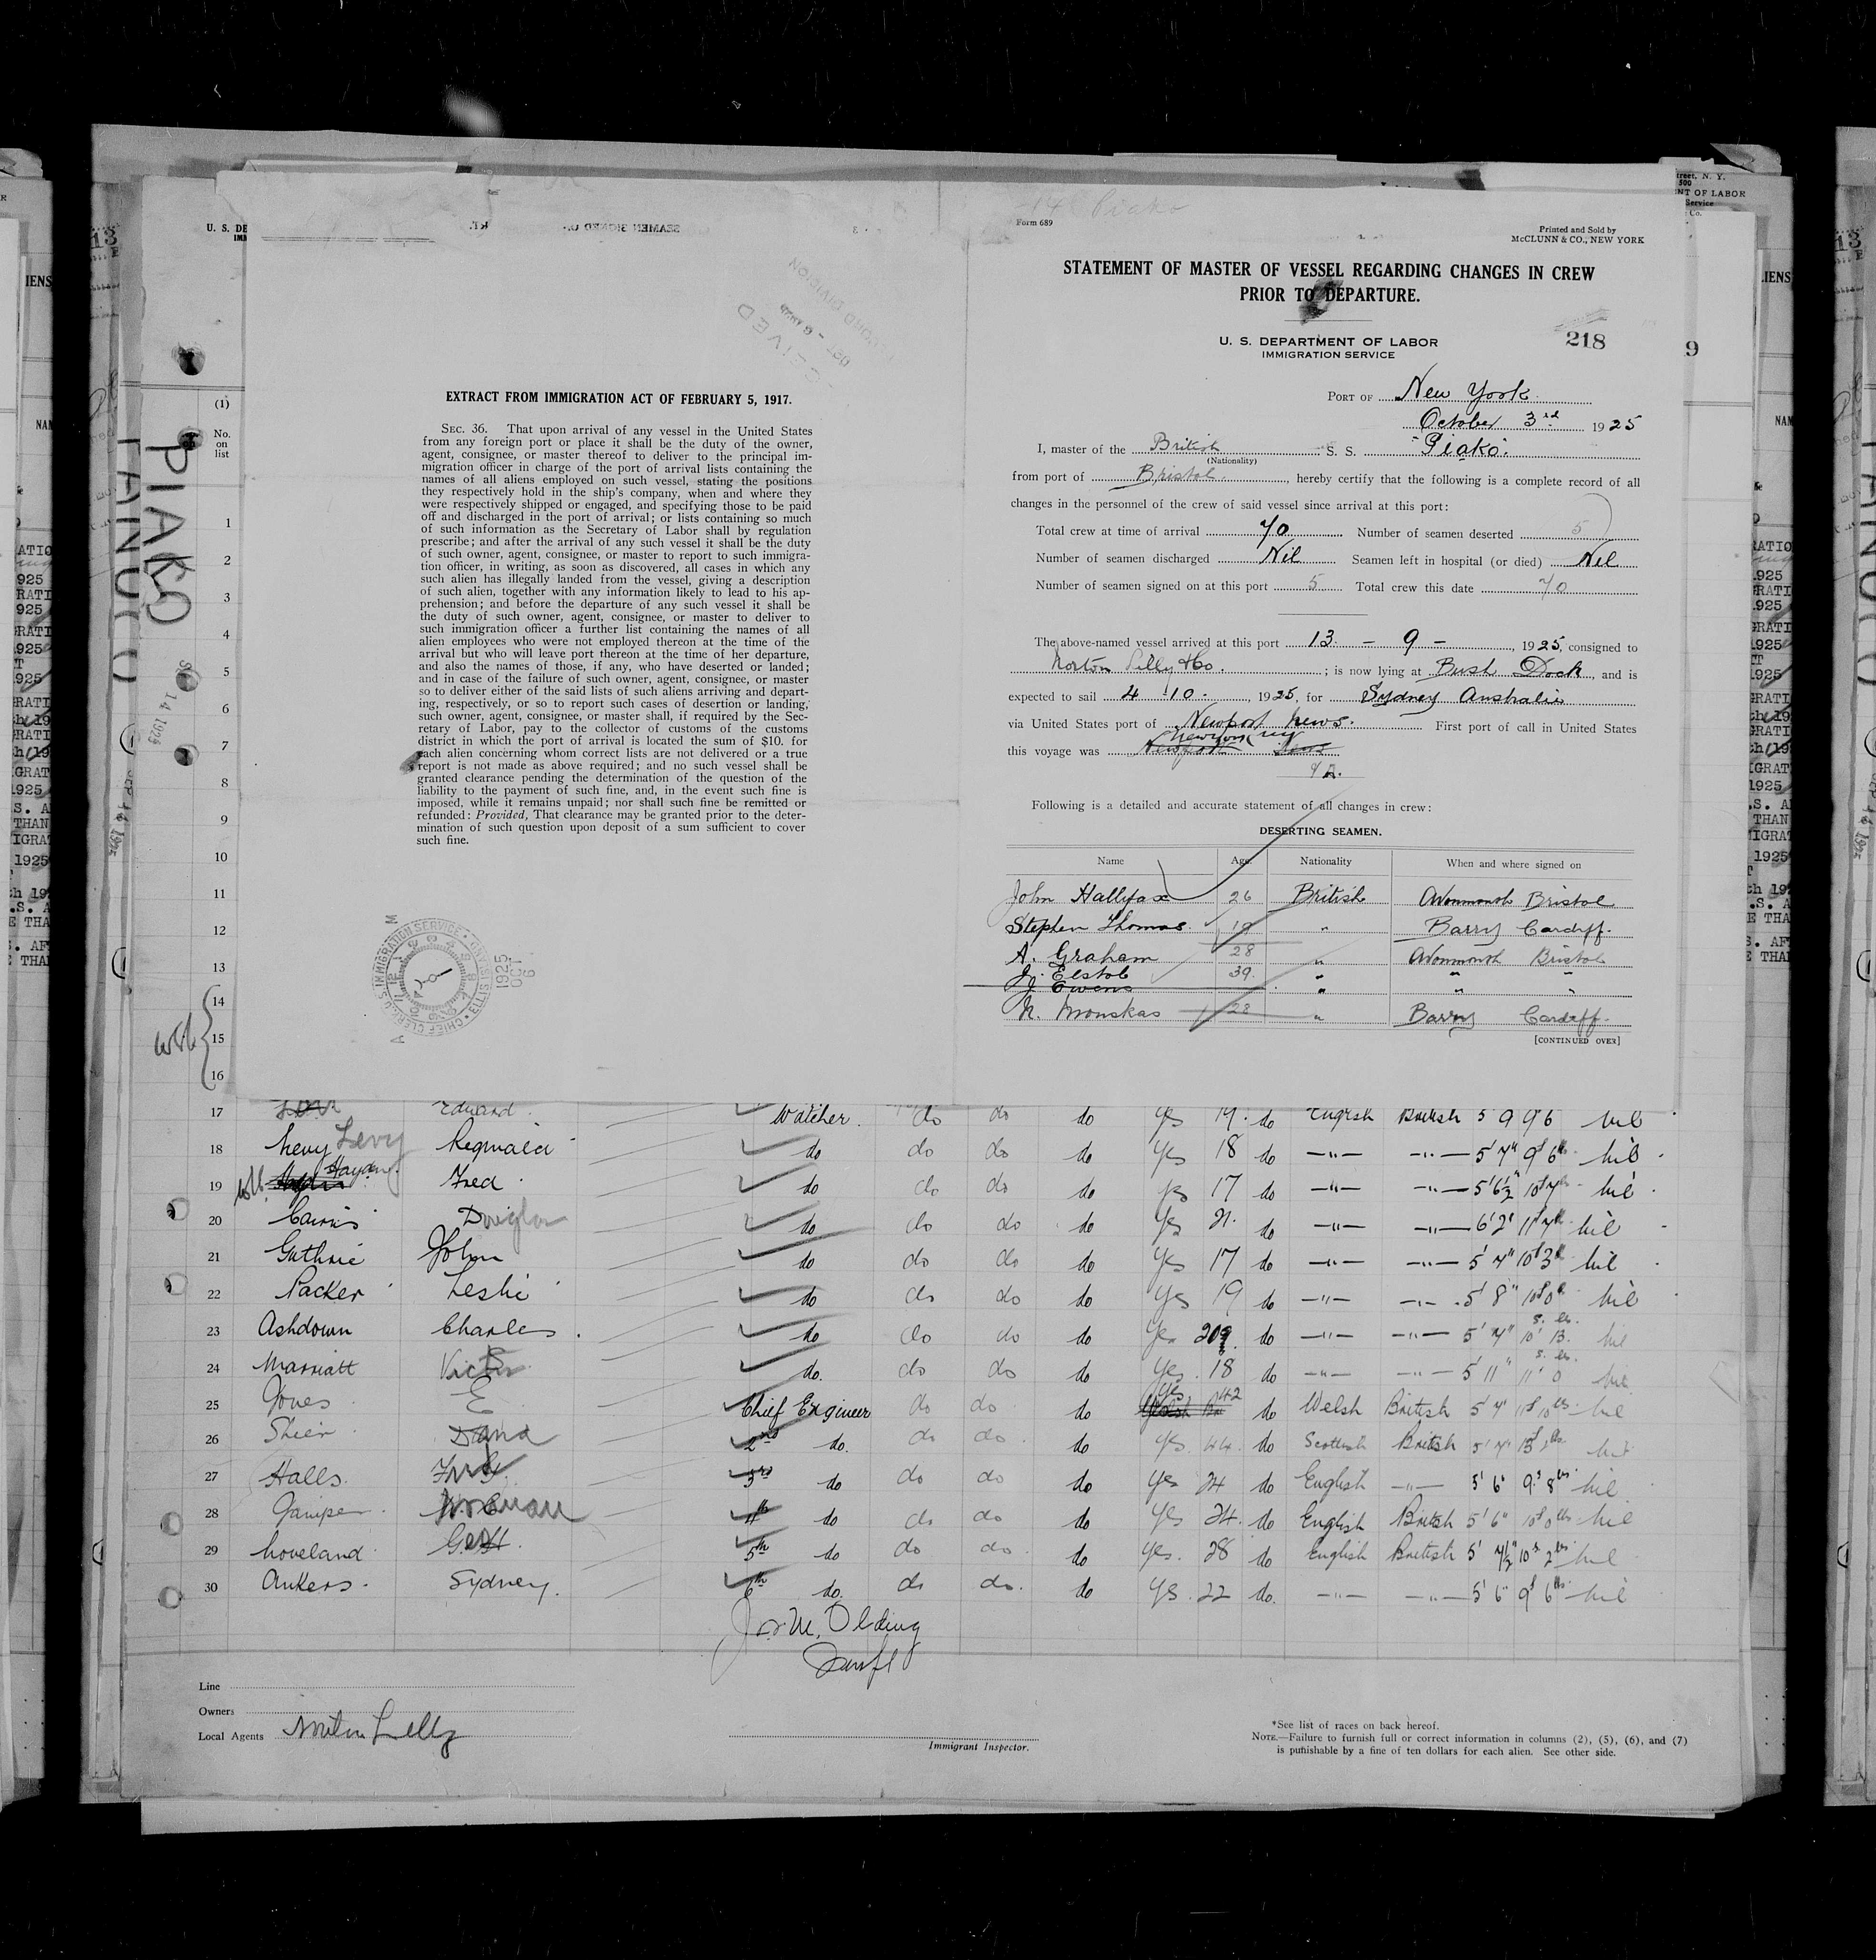 Form 689
Printed and Sold by
McCLUNN & CO., NEW YORK
STATEMENT OF MASTER OF VESSEL REGARDING CHANGES IN CREW
PRIOR TO DEPARTURE.
218
U. S. DEPARTMENT OF LABOR
IMMIGRATION SERVICE
PORT OF New York
October 3rd 1925
I, master of the British S. S. "Piako"
(Nationality)
from port of Bristol, hereby certify that the following is a complete record of all
changes in the personnel of the crew of said vessel since arrival at this port:
Total crew at time of arrival 70 Number of seamen deserted 5
Number of seamen discharged Nil Seamen left in hospital (or died) Nil
Number of seamen signed on at this port 5 Total crew this date 70
The above-named vessel arrived at this port 13 - 9 - 1925, consigned to
Norton Lilly & Co. ; is now lying at Bush Dock, and is
expected to sail 4 10. , 1925, for Sydney Australia
via United States port of Newport News. First port of call in United States
New York NY
this voyage was Newport News
Following is a detailed and accurate statement of all changes in crew:
DESERTING SEAMEN.
Name Age Nationality When and where signed on
John Hallifax 26 British Avonmouth Bristol
Stephen Thomas 19 " Barry Cardiff.
A. Graham 28 " Avonmouth Bristol
J. Elstob 39 " " "
J. Owens " " "
N. Mronskas 28 " Barry Cardiff.
[CONTINUED OVER]
EXTRACT FROM IMMIGRATION ACT OF FEBRUARY 5, 1917.
SEC. 36. That upon arrival of any vessel in the United States
from any foreign port or place it shall be the duty of the owner,
agent, consignee, or master thereof to deliver to the principal im-
migration officer in charge of the port of arrival lists containing the
names of all aliens employed on such vessel, stating the positions
they respectively hold in the ship's company, when and where they
were respectively shipped or engaged, and specifying those to be paid
off and discharged in the port of arrival; or lists containing so much
of such information as the Secretary of Labor shall by regulation
prescribe; and after the arrival of any such vessel it shall be the duty
of such owner, agent, consignee, or master to report to such immigra-
tion officer, in writing, as soon as discovered, all cases in which any
such alien has illegally landed from the vessel, giving a description
of such alien, together with any information likely to lead to his ap-
prehension; and before the departure of any such vessel it shall be
the duty of such owner, agent, consignee, or master to deliver to
such immigration officer a further list containing the names of all
alien employees who were not employed thereon at the time of the
arrival but who will leave port thereon at the time of her departure,
and also the names of those, if any, who have deserted or landed;
and in case of the failure of such owner, agent, consignee, or master
so to deliver either of the said lists of such aliens arriving and depart-
ing, respectively, or so to report such cases of desertion or landing,
such owner, agent, consignee, or master shall, if required by the Sec-
retary of Labor, pay to the collector of customs of the customs
district in which the port of arrival is located the sum of $10. for
each alien concerning whom correct lists are not delivered or a true
report is not made as above required; and no such vessel shall be
granted clearance pending the determination of the question of the
liability to the payment of such fine, and, in the event such fine is
imposed, while it remains unpaid; nor shall such fine be remitted or
refunded: Provided, That clearance may be granted prior to the deter-
mination of such question upon deposit of a sum sufficient to cover
such fine.
PIAKO
(1)
No.
on
list
1
2
3
4
5
6
7
8
9
10
11
12
13
14
15
16
17 Edward Watcher. do do do Yes 19. do English British 5 9 9 6 nil
18 Levy Levy Reginald do do do do Yes 18 do —"— —"— 5'7" 9 6 nil
19 Hayden Fred do do do do yes 17 do —"— —"— 5'6½ 10 7 nil
20 Cairns Douglas do do do do Yes 21. do —"— —"— 6'2" 11 7 nil
21 Guthrie John do do do do Yes 17 do —"— —"— 5'7" 10 3 nil
22 Packer Leslie do do do do Yes 19 do —"— —"— 5'8" 10 0 nil
23 Ashdown Charles do do do do Yes 20 do —"— —"— 5'7" 10 13. nil
24 Marriatt Victor do. do do do Yes. 18 do —"— —"— 5'11" 11 0 nil
25 Jones E Chief Engineer do do do Yes 42 do Welsh British 5'7 11 10 nil
26 Shier David 2nd do. do do do yes. 44. do Scottish British 5'7" 13 nil
27 Halls. Fred 3rd do do do do Yes 24 do English —"— 5'6" 9 8 nil
28 Gamper Norman 4th do do do do Yes 24. do English British 5'6" 10 0 nil
29 Loveland 5th do do do do Yes. 28 do English British 5'7½ 10 2 nil
30 Ankers. Sydney. 6th do. do do. do Yes. 22 do. —"— —"— 5'6" 9 6 nil
Jas M. Olding
Line
Owners
Local Agents Norton Lilly
Immigrant Inspector.
*See list of races on back hereof.
NOTE.—Failure to furnish full or correct information in columns (2), (5), (6), and (7)
is punishable by a fine of ten dollars for each alien. See other side.